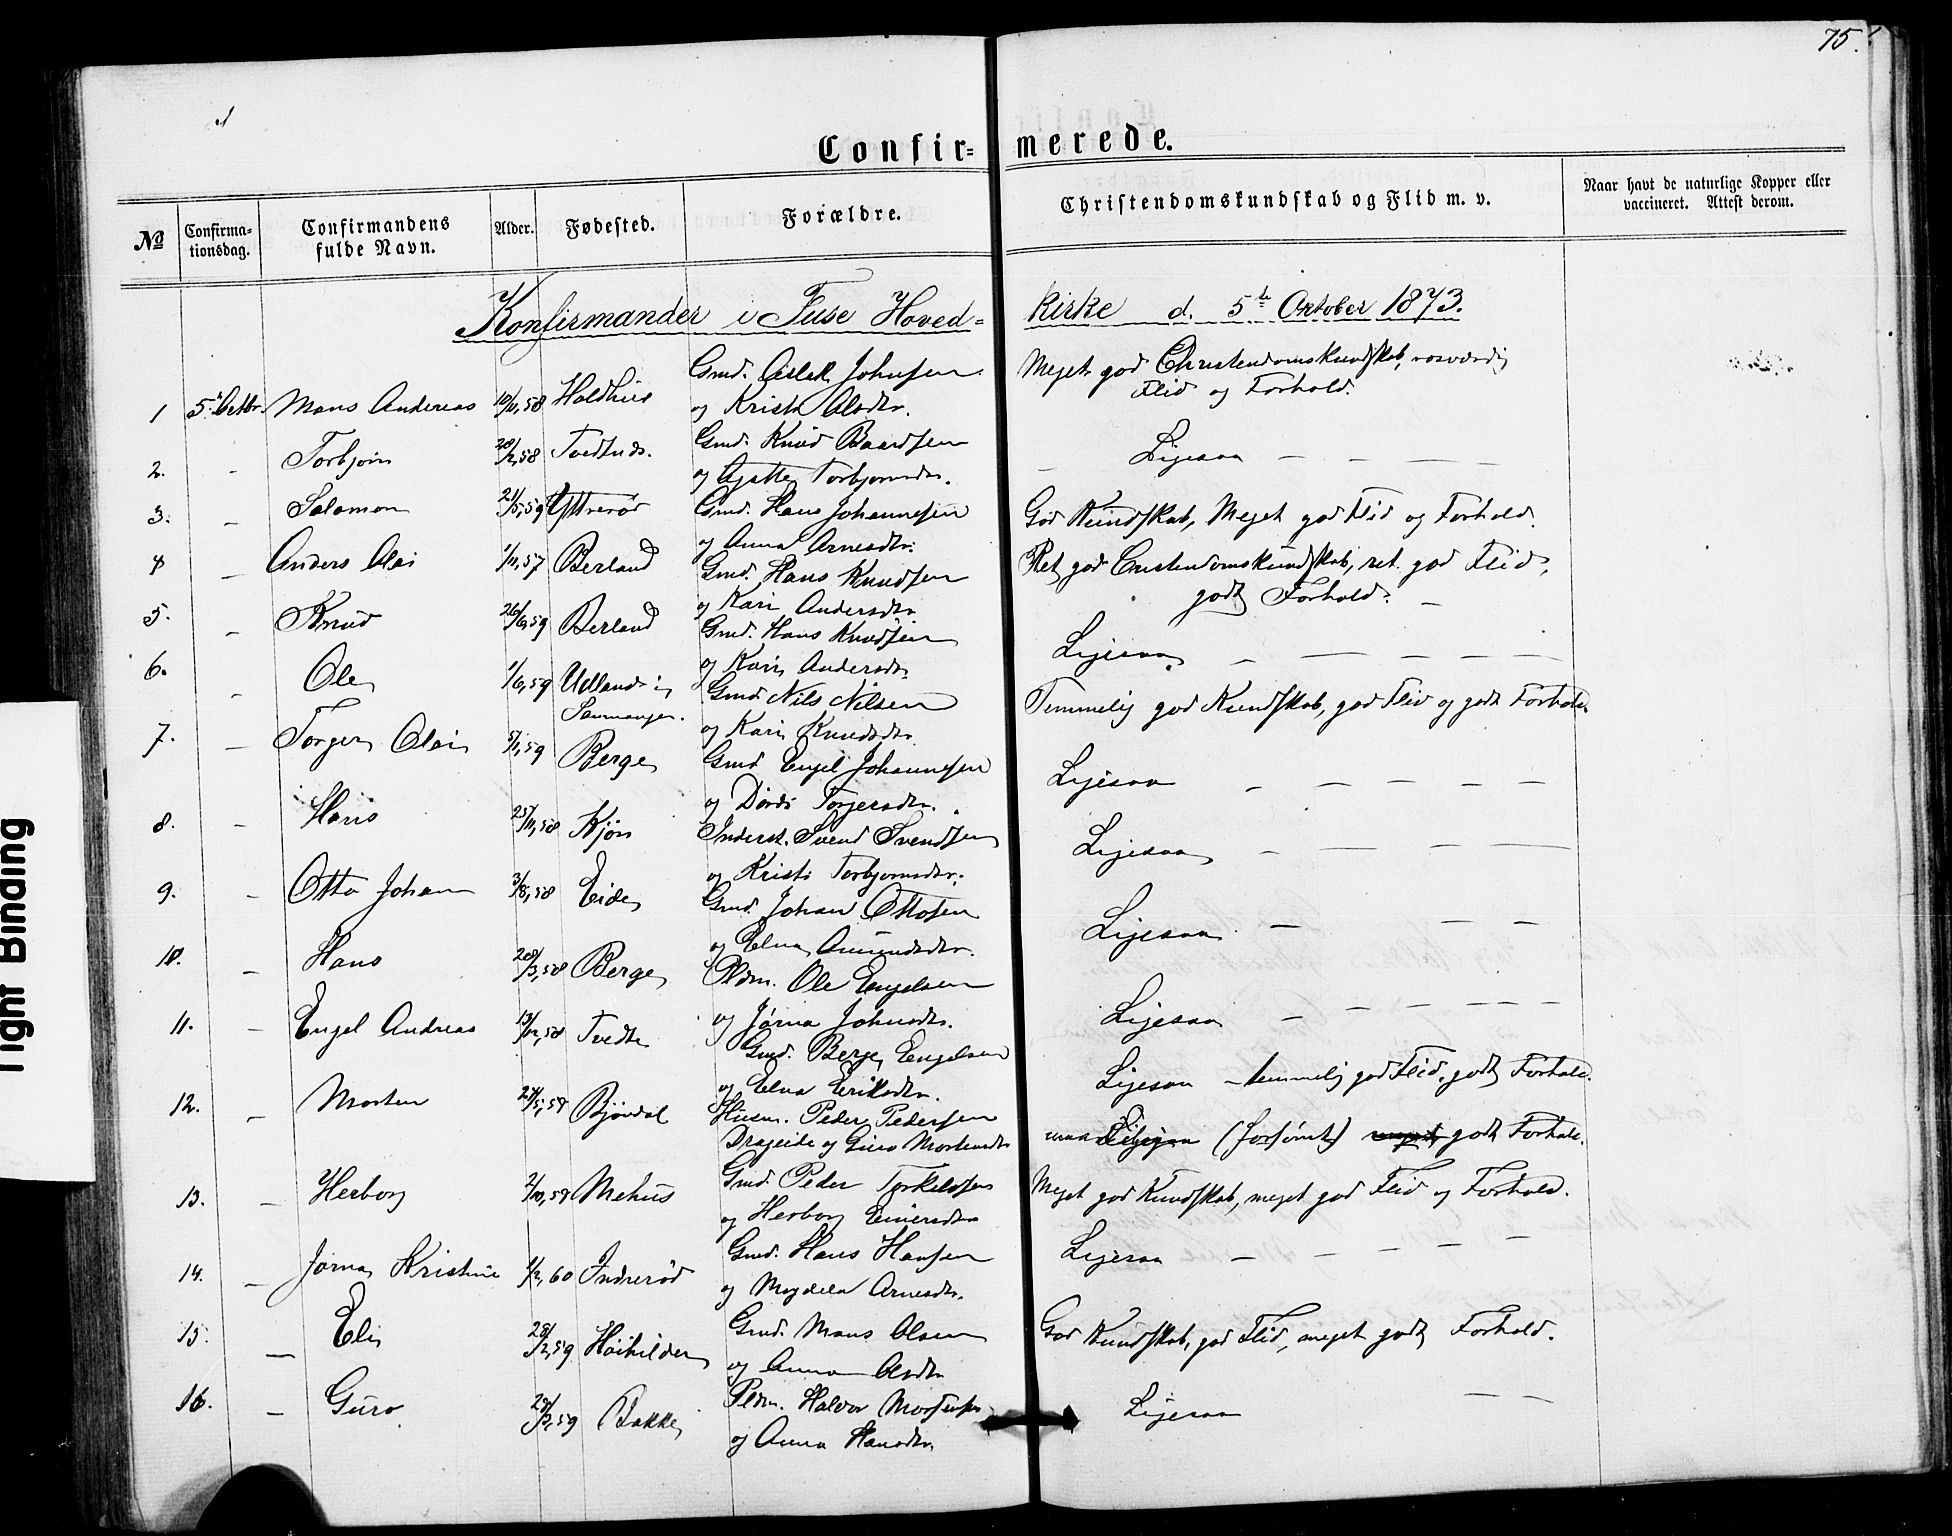 75.
Confir= merede.
No
Confirma-
tionsdag.
Confirmandens
fulde Navn.
Alder.
Fødested.
Forældre.
Christendomskundskab og Flid m. v.
Naar havt de naturlige Kopper eller
vaccineret. Attest derom.
Konfirmander i Fuse Hoved= kirke d. 5te Oktober 1873.
1 5. Octbr. Mons Andreas 10/11,58 Holdhus Gmd. Aslak Johnsen Meget god Christendomskundskab, rosværdig
og Krista Olsdtr. Flid og Forhold.
2. - Torbjørn 28/2,58 Gmd. Knud Baardsen Ligesaa — — —
og Agatte Torbjørnsdtr.
3. - Salomon 21/5,59 Yttrerød Gmd. Hans Johannesen God Kundskab, Meget god Flid og Forhold.
og Anna Arnesdtr.
4 - Anders Olai 1/11,57 Berland Gmd. Hans Knudsen Ret god Christendomskundskab, ret god Flid,
og Kari Andersdtr. godt Forhold. —
5. - Knud 26/6,59 Berland Gmd. Hans Knudsen Ligesaa — — — — —
og Kari Andersdtr.
6. - Ole 1/6,59 Udland i Gmd. Nils Nilsen Temmelig god Kundskab, god Flid og godt Forhold.
Samnanger. og Kari Knudsdtr.
7. - Torger Olai 5/1,59 Berge Gmd. Engel Johannesen Ligesaa — — — — —
og Dordi Torgersdtr.
8. - Hans 25/11,58 Kjøn Inderst. Svend Svendsen Ligesaa — — — —
og Kristi Torbjørnsdtr.
9. - Otto Johan 3/8,58 Eide Gmd. Johan Ottosen Ligesaa — — —
og Elna Amundsdtr.
10. - Hans 28/3,58 Berge Pldm. Ole Engelsen Ligesaa — — — — —
og Jørna Johnsdtr.
11. - Engel Andreas 13/12,58 Tvedte Gmd. Berge Engelsen Ligesaa — temmelig god Flid, godt Forhold.
og Elna Eriksdtr.
12. - Morten Bjørndal Husm. Peder Pedersen Ligesaa (forsømt) meget godt Forhold.
Drageide og Guro Mortensdtr
13. - Herborg 2/10,58 Mehus Gmd. Peder Torkelsen Meget god Kundskab, meget god Flid og Forhold.
og Herborg Einersdtr
14. - Jørna Kristine 1/2,60 Indrerød Gmd. Hans Hansen Ligesaa — — — — —
og Magdela Arnesdtr.
15. - Eli 28/2,59 Høikilder Gmd. Mons Olsen God Kundskab, god Flid, meget godt Forhold.
og Anna Olsdtr
16. - Guro 29/3,59 Bakke Pldm. Halvor Mortensen Ligesaa — —
og Anna Hansdtr.
Tight Binding